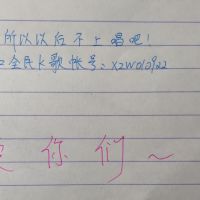 所以以后不上唱吧!
全民K歌帐号:xzw010922
你们~